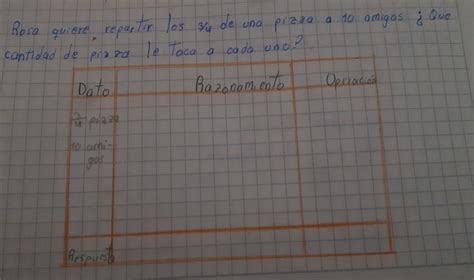 Rosa quiere repartir los 3/4 de una pizza a 10 amigos ¿Que
cantidad de pizza le toca a cada uno?
Dato
Razonamiento
Operación
3/4 pizza
10 ami-
gos
Respuesta